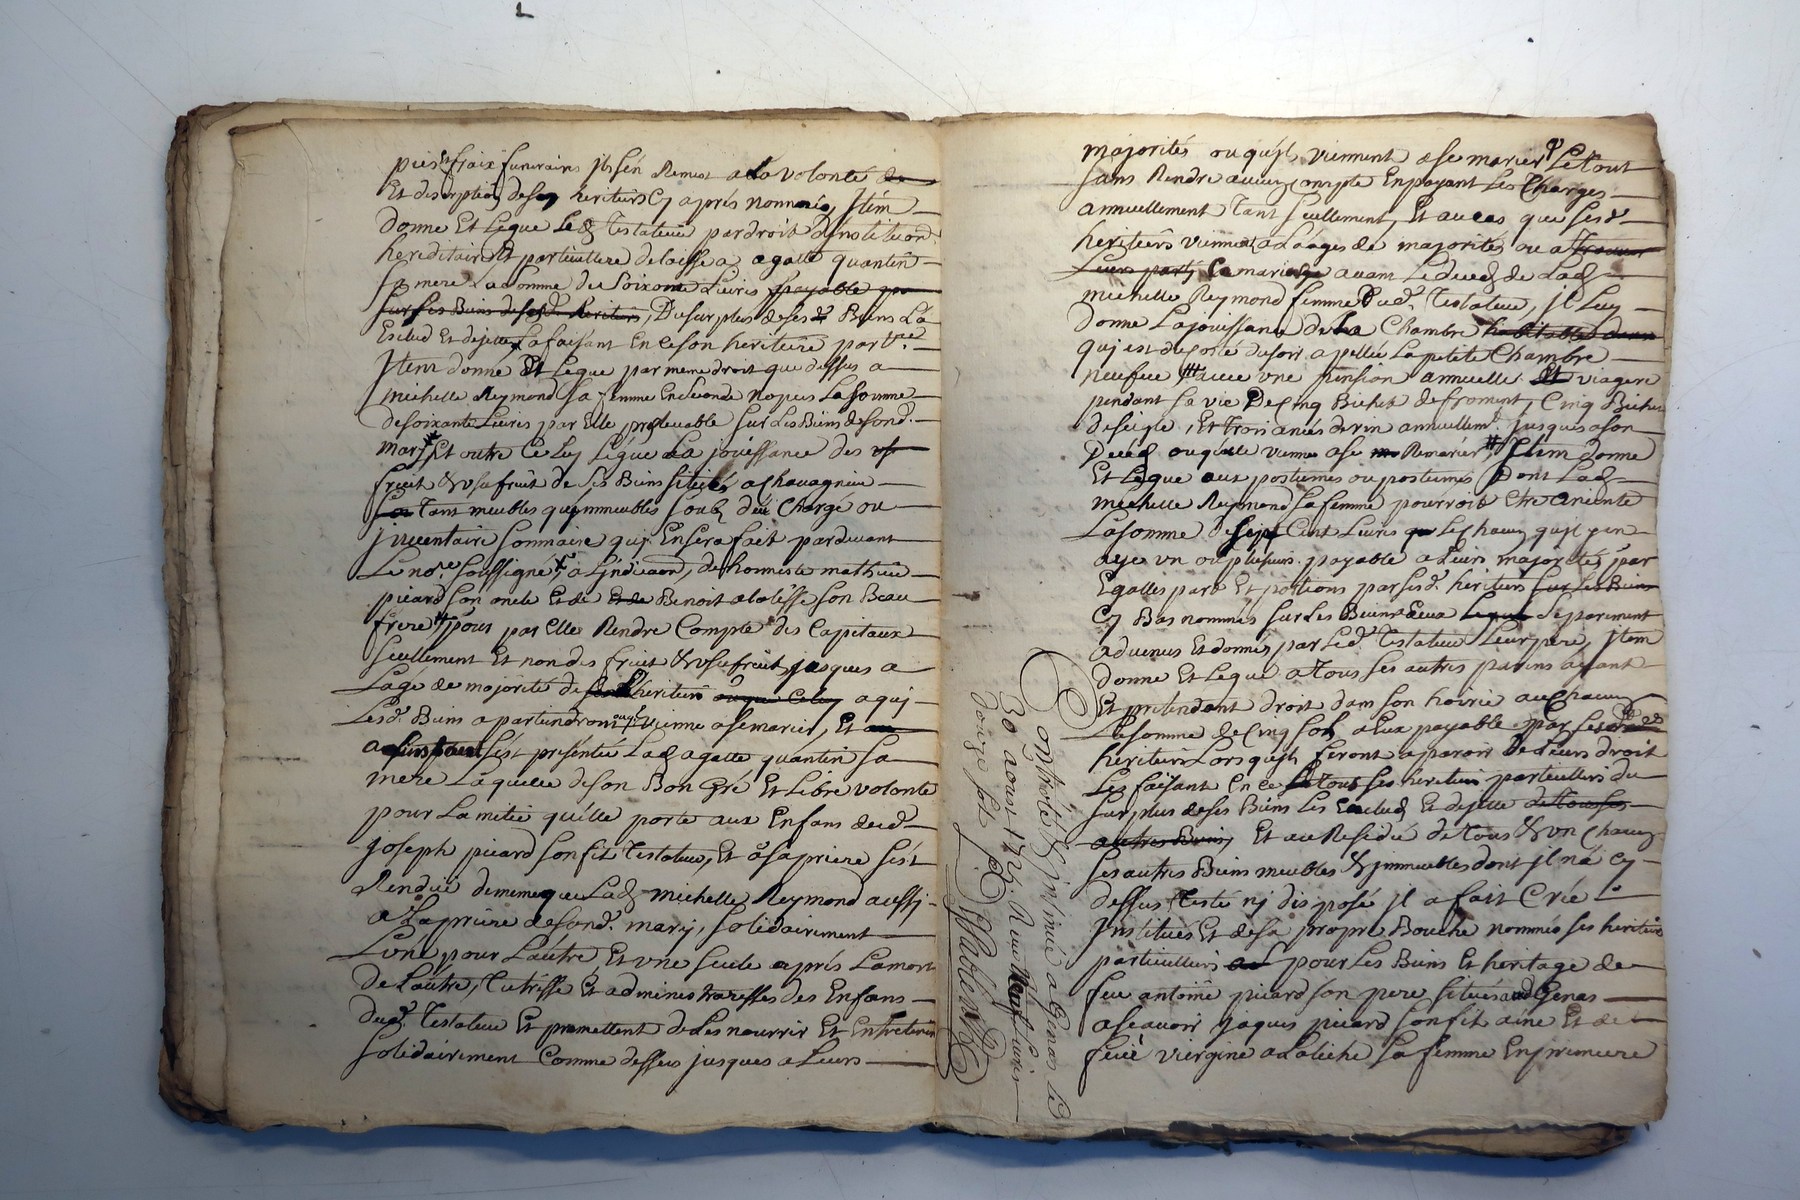 pies et fraix funeraires Jl s'en Remest a la volonté de
Et discreption de ses heritiers Cy aprés nommés, Jtem
donne Et Legue Led. Testateur par droit d'institution
hereditaire Et particulliere delaisse a agatte quantin
sa mere La somme de Soixante Livres payable par
sur les Biens de sesd. heritiers, Du surplus de ses Biens La
Exclud Et dejette La faisant En ce son heritiere part.re
Jtem donne Et Legue par meme droit que dessus a
michelle Reymond sa femme En seconde nopces La somme
de soixante Livres par Elle prelevable sur Les Biens de sond.
mary, Et outre Ce Luy Légue La joüissance des
fruit & usufruit de ses Biens situés a Chavagnieu
Tant meubles qu'jmmeubles soub deüe Charge ou
jnventaire sommaire quj En sera fait pardevant
Le no.re soussigné, a L'jndicaon, de honneste mathieu
picard son oncle Et de Et de Benoit alatisse son Beau
frere pour par Elle Rendre Compte des Capitaux
seullement Et non des fruit & usufruit, jusques a
Lage de majorité de heritiers ou que Celuy a quj
Lesd. Biens apartiendront vienne a se marier, Et
s'est présentée Lad. agatte quantin sa
mere Laquelle de son Bon Gré Et Libre volonté
pour Lamitié qu'elle porte aux Enfans dud.
Joseph picard son fil Testateur, Et a sa priere s'est
Rendüe de meme que Lad. michelle Reymond aussj
a La priere de sond. mary, solidairement
L'une pour L'autre Et une seule aprés La mort
de L'autre, Tutrisse Et administraresses des Enfans
dud. Testateur Et promettent de Les nourrir Et Entretenir
solidairement Comme dessus jusques a Leurs
Controllé & jnsinué a Genas Le
30 aoust 172j. Receu Neuf Livres
douze sol
majorités ou qu'jls viennent a se marier Le tout
sans Rendre aucun compte En payant Les Charges
annuellement Tant seullement, Et au cas que sesd.
heritiers viennent a Lâages de majorités ou a trouver
Leurs party Ce mariage avant Le deced de Lad.
michelle Reymond femme Dud. Testateur, jl Luy
donne La joüissance de La Chambre habitable
quj est du costé du soir apellée La petite Chambre
neufve avec une pension annuelle Et viagere
pendant sa vie De Cinq Bichet de froment, Cinq Bichet
de seigle, Et trois anées de vin annuellem.t jusques a son
Deced ou qu'elle vienne a se Remarier, Jtem donne
Et Legue aux postumes ou postumes Dont Lad.
michelle Reymond sa femme pourroit Etre Enceinte
La somme de sept Cent Livres a Leschacun qu'jl y en
aye un ou plusieurs payable a Leurs majorités, par
Egalles part Et portions par sesd. heritiers sur Les Biens
Cy Bas nommés sur Les Biens a Eux separement
advenus Et donnés par Led. Testateur Leur pere, Jtem
donne Et Legue a Tous ses autres parens ayant
Et pretendant droit dans son hoirie au Chacun
La somme de Cinq sols a Eux payable par sesd.
heritiers Lors qu'jls feront aparoir de Leurs droit
Les faisant En ce ses heritiers particulliers du
surplus de ses Biens Les Exclud Et dejette de Tous ses
autres Biens, Et au Residu de Tous & Un Chacun
ses autres Biens meubles & jmmeubles dont jl n'a Cy
dessus Testé nj disposé jl a fait Créé
Jnstitués Et de sa propre Bouche nommés ses heritiers
particulliers pour Les Biens Et heritage de
feu antoine picard son pere situés aud. Genas
a scavoir jaques picard son fil ainé Et de
feüe viergine a La tiche sa femme En premiere